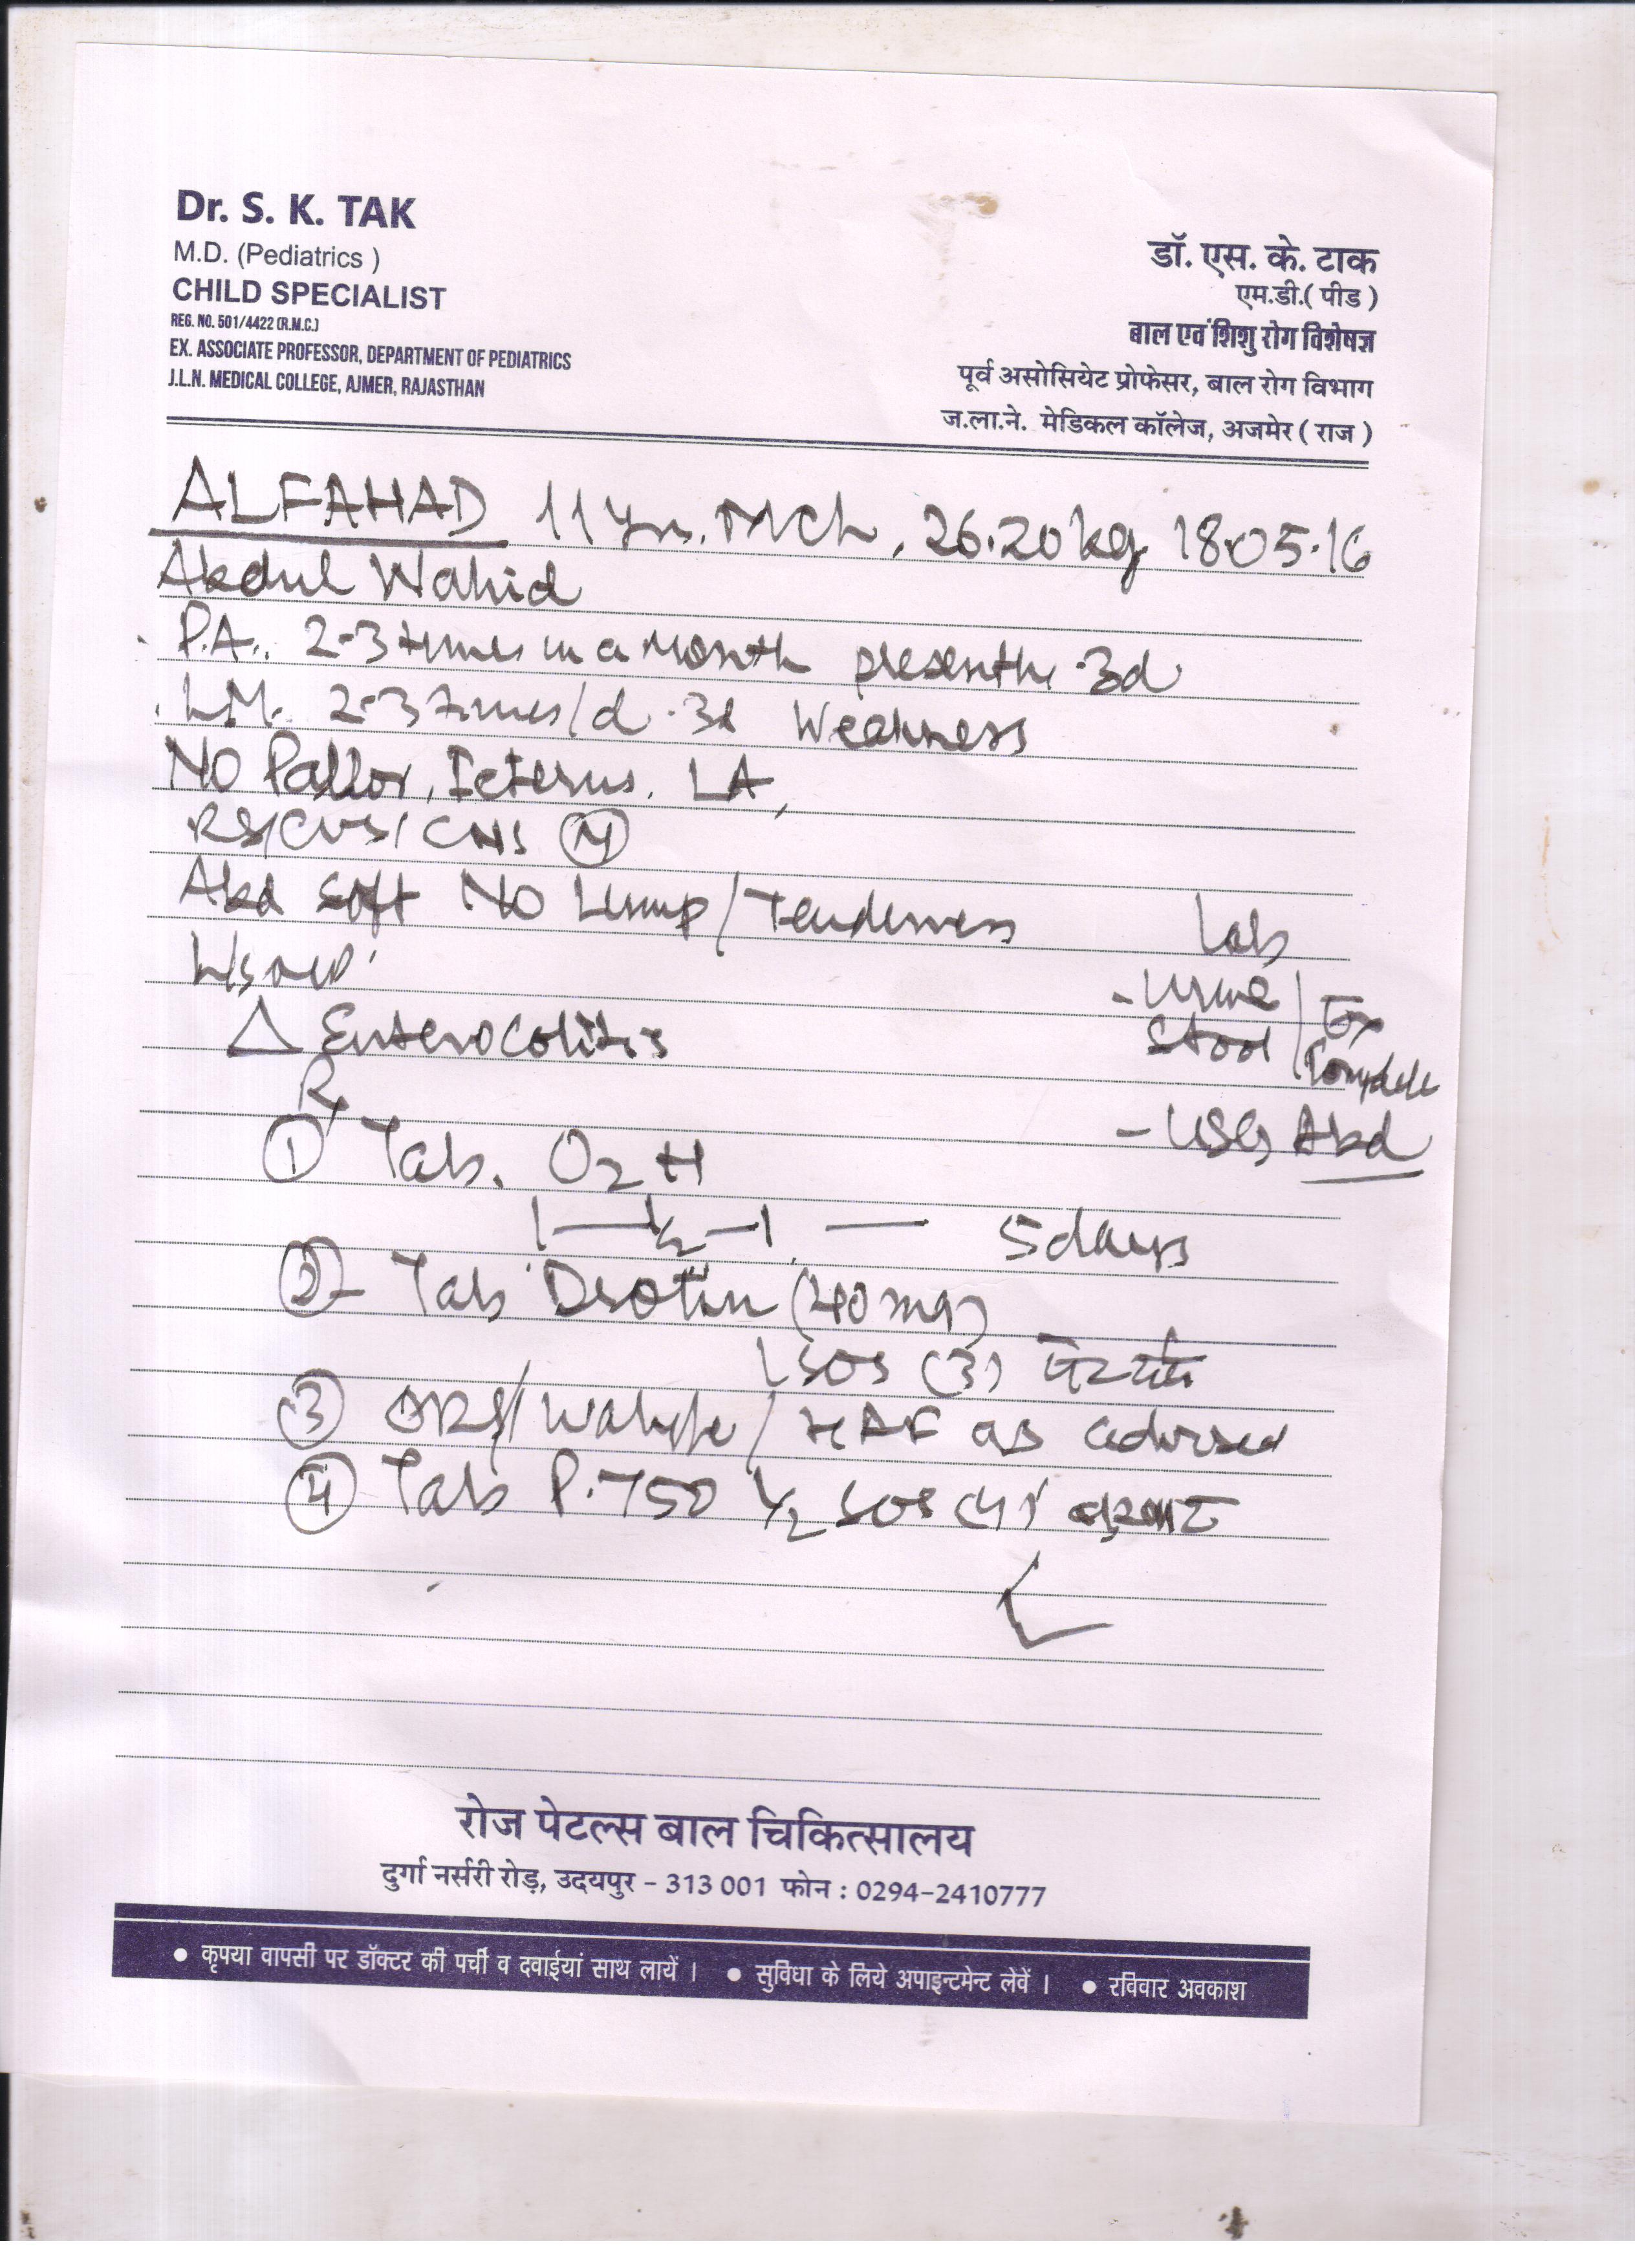 Dr. S. K. TAK
M.D. (Pediatrics )
CHILD SPECIALIST
REG. NO. 501/4422 (R.M.C.)
EX. ASSOCIATE PROFESSOR, DEPARTMENT OF PEDIATRICS
J.L.N. MEDICAL COLLEGE, AJMER, RAJASTHAN
डॉ. एस. के. टाक
एम.डी.( पीड )
बाल एवं शिशु रोग विशेषज्ञ
पूर्व असोसियेट प्रोफेसर, बाल रोग विभाग
ज.ला.ने. मेडिकल कॉलेज, अजमेर ( राज )
ALFAHAD 11 yrs. MCh, 26.20 kg 18.05.16
Abdul Wahid
P.A.. 2-3 times in a month presently 3d
L.M. 2-3 times/d . 3d Weakness
No Pallor, Icterus. LA,
RS/CVS/CNS N
Abd soft No Lump/Tenderness
Lab
- Urine / Ex
Stool / Complete
- USG Abd
△ Enterocolitis
Rx
① Tab. O2 H
1—½—1 — 5 days
② Tab Drotin (40 mg)
1 SOS (3) पेट दर्द
③ ORS/ / HAF as advised
④ Tab P-750 ½ SOS
रोज पेटल्स बाल चिकित्सालय
दुर्गा नर्सरी रोड़, उदयपुर - 313 001 फोन : 0294-2410777
• कृपया वापसी पर डॉक्टर की पर्ची व दवाईयां साथ लायें । • सुविधा के लिये अपाइन्टमेन्ट लेवें । • रविवार अवकाश